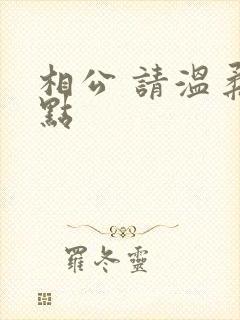 相公 請溫柔
點
羅冬靈